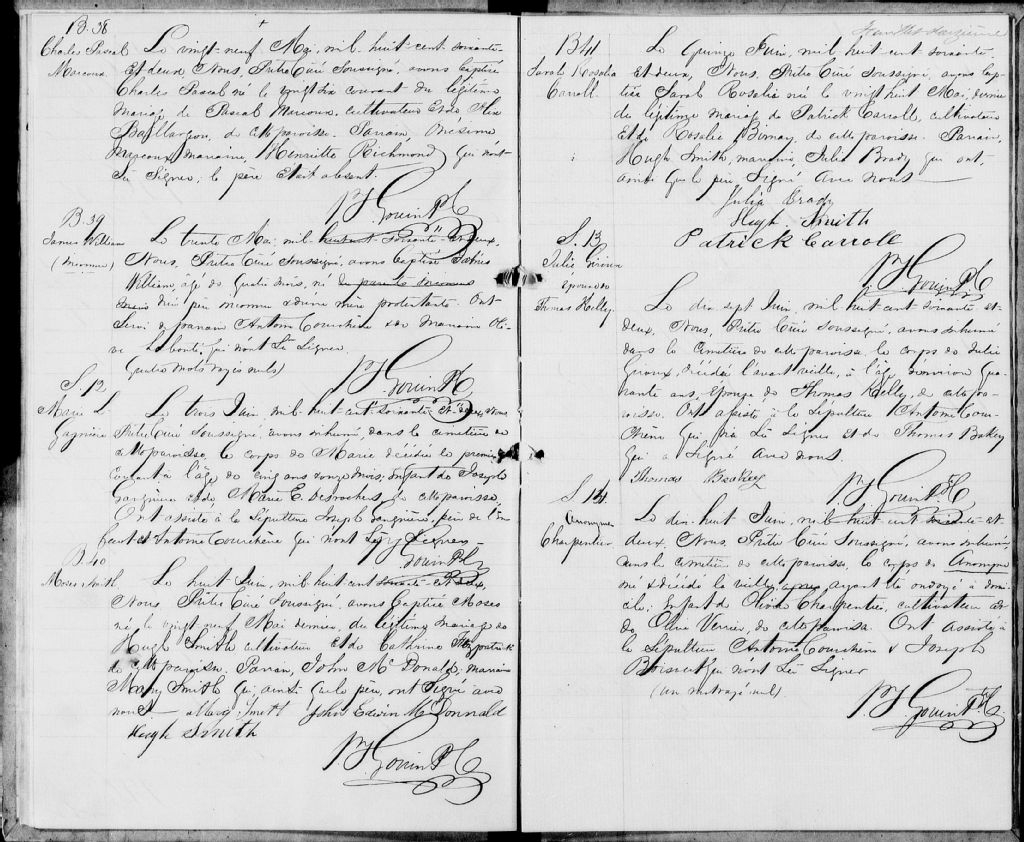 B. 38
Charles Pascal
Marcoux
Le vingt-neuf Mai, mil huit-cent-soixante-
Et deux, Nous, Prêtre Curé soussigné, avons baptisé
Charles Pascal né le vingt six courant du légitime
Mariage de Pascal Marcoux, cultivateur et de
Baillargeon, de cette paroisse. Parrain, Onesime
Marcoux, marraine, Henriette Richmond qui n'ont
Su Signer; le père était absent.
Gouin Ptre C
B. 39
James William
(inconnu)
Le trente Mai, mil huit-cent soixante-et-deux,
Nous, Prêtre Curé Soussigné, avons baptisé James
William, âgé de quatre mois, né de parents inconnus
mais d'un père inconnu et d'une mère protestante. Ont-
Servi de parrain Antoine Courchène et de Marraine Oli-
ve Labonté, qui n'ont Su Signer.
Quatre Mots rayés nuls)
Gouin Ptre C
S. 12
Marie L.
Gagnière
Le trois Juin, mil huit-cent-soixante-et-deux, Nous
Prêtre Curé Soussigné, avons inhumé, dans le cimetière de
cette paroisse, le corps de Marie décédée le premier
courant à l'âge de cinq ans onze mois, Enfant de Joseph
et de Marie E. Desrochers, de cette paroisse.
Ont assisté à la Sépulture Joseph, père de l'en-
fant et Antoine Courchène qui n'ont Su y Signer-
Gouin Ptre C
B. 40
Moses Smith
Le huit Juin, mil huit cent soixante-et-deux,
Nous Prêtre Curé Soussigné, avons baptisé Moses
né, le vingt neuf Mai dernier, du légitime mariage de
Hugh Smith cultivateur et de Catherine Fitzpatrick
de cette paroisse. Parrain, John McDonald, marraine
Mary Smith qui, ainsi que le père, ont Signé avec
nous. Mary Smith John Edwin McDonnald
Hugh Smith
Gouin Ptre C
B 41
Sarah Rosalia
Carroll.
Le Quinze Juin, mil huit cent soixante
Et deux, Nous, Prêtre Curé Soussigné, avons bap-
tisé Sarah Rosalia née le vingt huit Mai, dernier
du légitime mariage de Patrick Carroll, cultivateur
Et de Rosalie, de cette paroisse. Parrain,
Hugh Smith, marraine, Julia Brady qui ont-
ainsi que le père, Signé avec nous
Julia Brady
Hugh Smith
Patrick Carroll
Gouin Ptre C
S. 13
Julie Giroux
épouse de
Thomas Kelley.
Le dix sept Juin, mil huit cent soixante et-
deux, Nous, Prêtre Curé Soussigné, avons inhumé
dans le cimetière de cette paroisse, le corps de Julie
Giroux, décédée l'avant veille, à l'âge d'environ qua-
rante ans, épouse de Thomas Kelley, de cette pa-
roisse. Ont assisté à la Sépulture Antoine Cour-
chène qui n'a Su Signer et de Thomas Bakey
qui a Signé avec nous.
Thomas Beakey
Gouin Ptre C
S. 14.
Anonyme
Charpentier.
Le dix-huit Juin, mil huit cent soixante-et
deux, Nous, Prêtre Curé Soussigné, avons inhumé,
dans le cimetière de cette paroisse, le corps de Anonyme
né et décédé la veille, ayant été ondoyé à domi-
cile; Enfant de Charpentier, cultivateur et
de Olive Verrier, de cette paroisse. Ont assisté à
la Sépulture Antoine Courchène et Joseph
qui n'ont Su Signer
(un mot rayé nul)
Gouin Ptre C